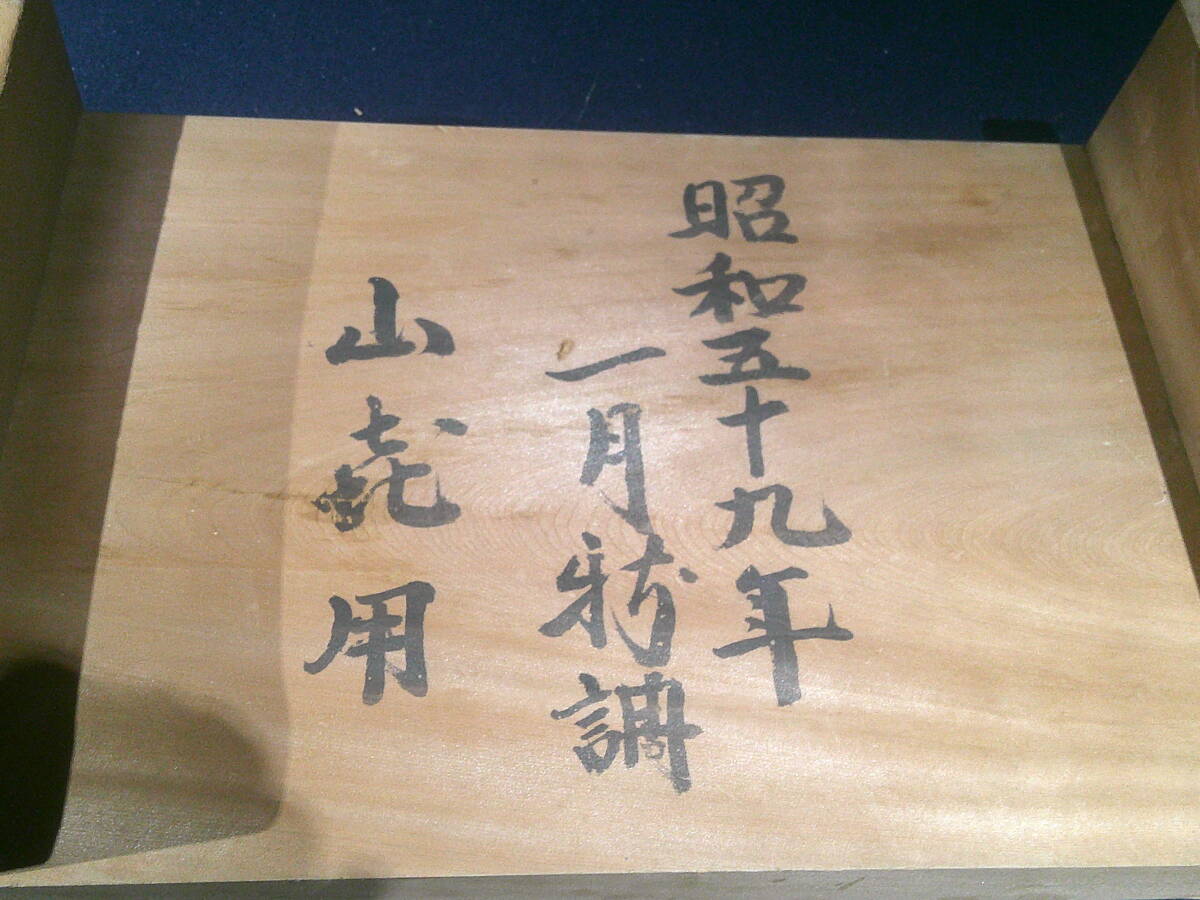 昭和五十九年
一月新調
山㐂用